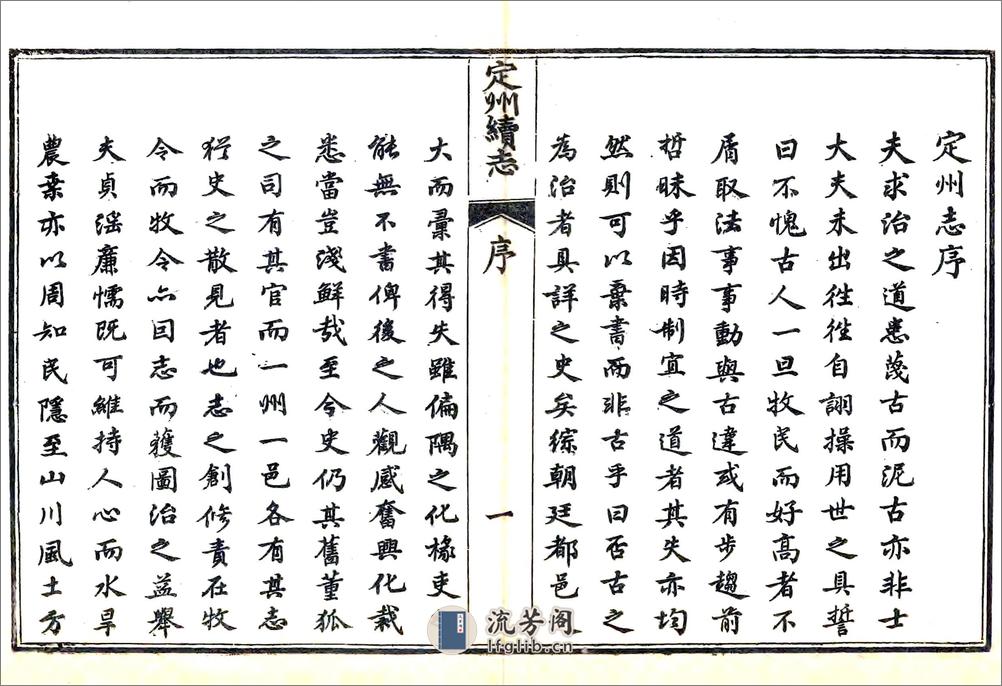 定州志序
夫求治之道患蔑古而泥古亦非士
大夫未出徃徃自詡操用世之具誓
曰不愧古人一旦牧民而好高者不
屑取法事事動與古違或有步趨前
哲昧乎因時制宜之道者其失亦均
然則可以棄書而非古乎曰否古之
為治者具詳之史矣綜朝廷都邑
定州續志
序
一
大而彙其得失雖偏隅之化椽吏
能無不書俾後之人觀感奮興化裁
悉當豈淺鮮哉至今史仍其舊董狐
之司有其官而一州一邑各有其志
猶史之散見者也志之創修責在牧
令而牧令亦因志而獲圖治之益舉
夫貞淫廉懦既可維持人心而水旱
農桑亦以周知民隱至山川風土方
流芳阁
lfglib.cn